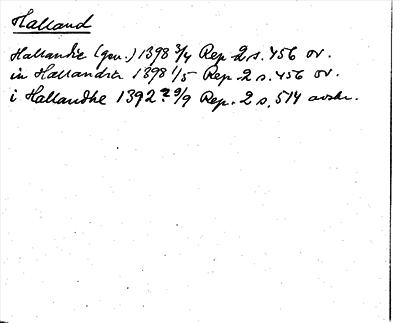 Halland
Hallandie (gen.) 1398 3/4 Rep. 2 s. 456 or.
in Hallandie 1398 1/5 Rep. 2 s. 456 or.
i Hallandhe 1392 29/9 Rep. 2 s. 514 avskr.